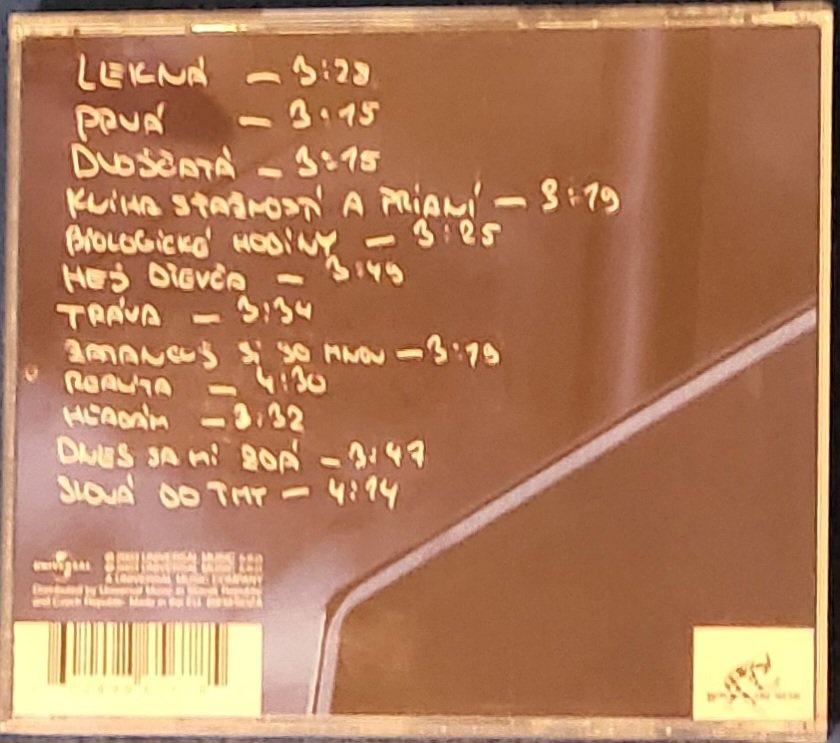 LEKNÁ – 3:28
PRVÁ – 3:15
DVOJČATÁ – 3:15
KNIHA SŤAŽNOSTÍ A PRIANÍ – 3:19
BIOLOGICKÉ HODINY – 3:25
HEJ DIEVČA – 3:49
TRÁVA – 3:34
ZATANCUJ SI SO MNOU – 3:19
REALITA – 4:30
HĽADÁM – 3:32
DNES SA MI ZDÁ – 3:47
SLOVÁ DO TMY – 4:14
UNIVERSAL
UNIVERSAL MUSIC
UNIVERSAL MUSIC
A UNIVERSAL MUSIC COMPANY
Distributed by Universal Music in Slovak Republic
and Czech Republic. Made in the EU.